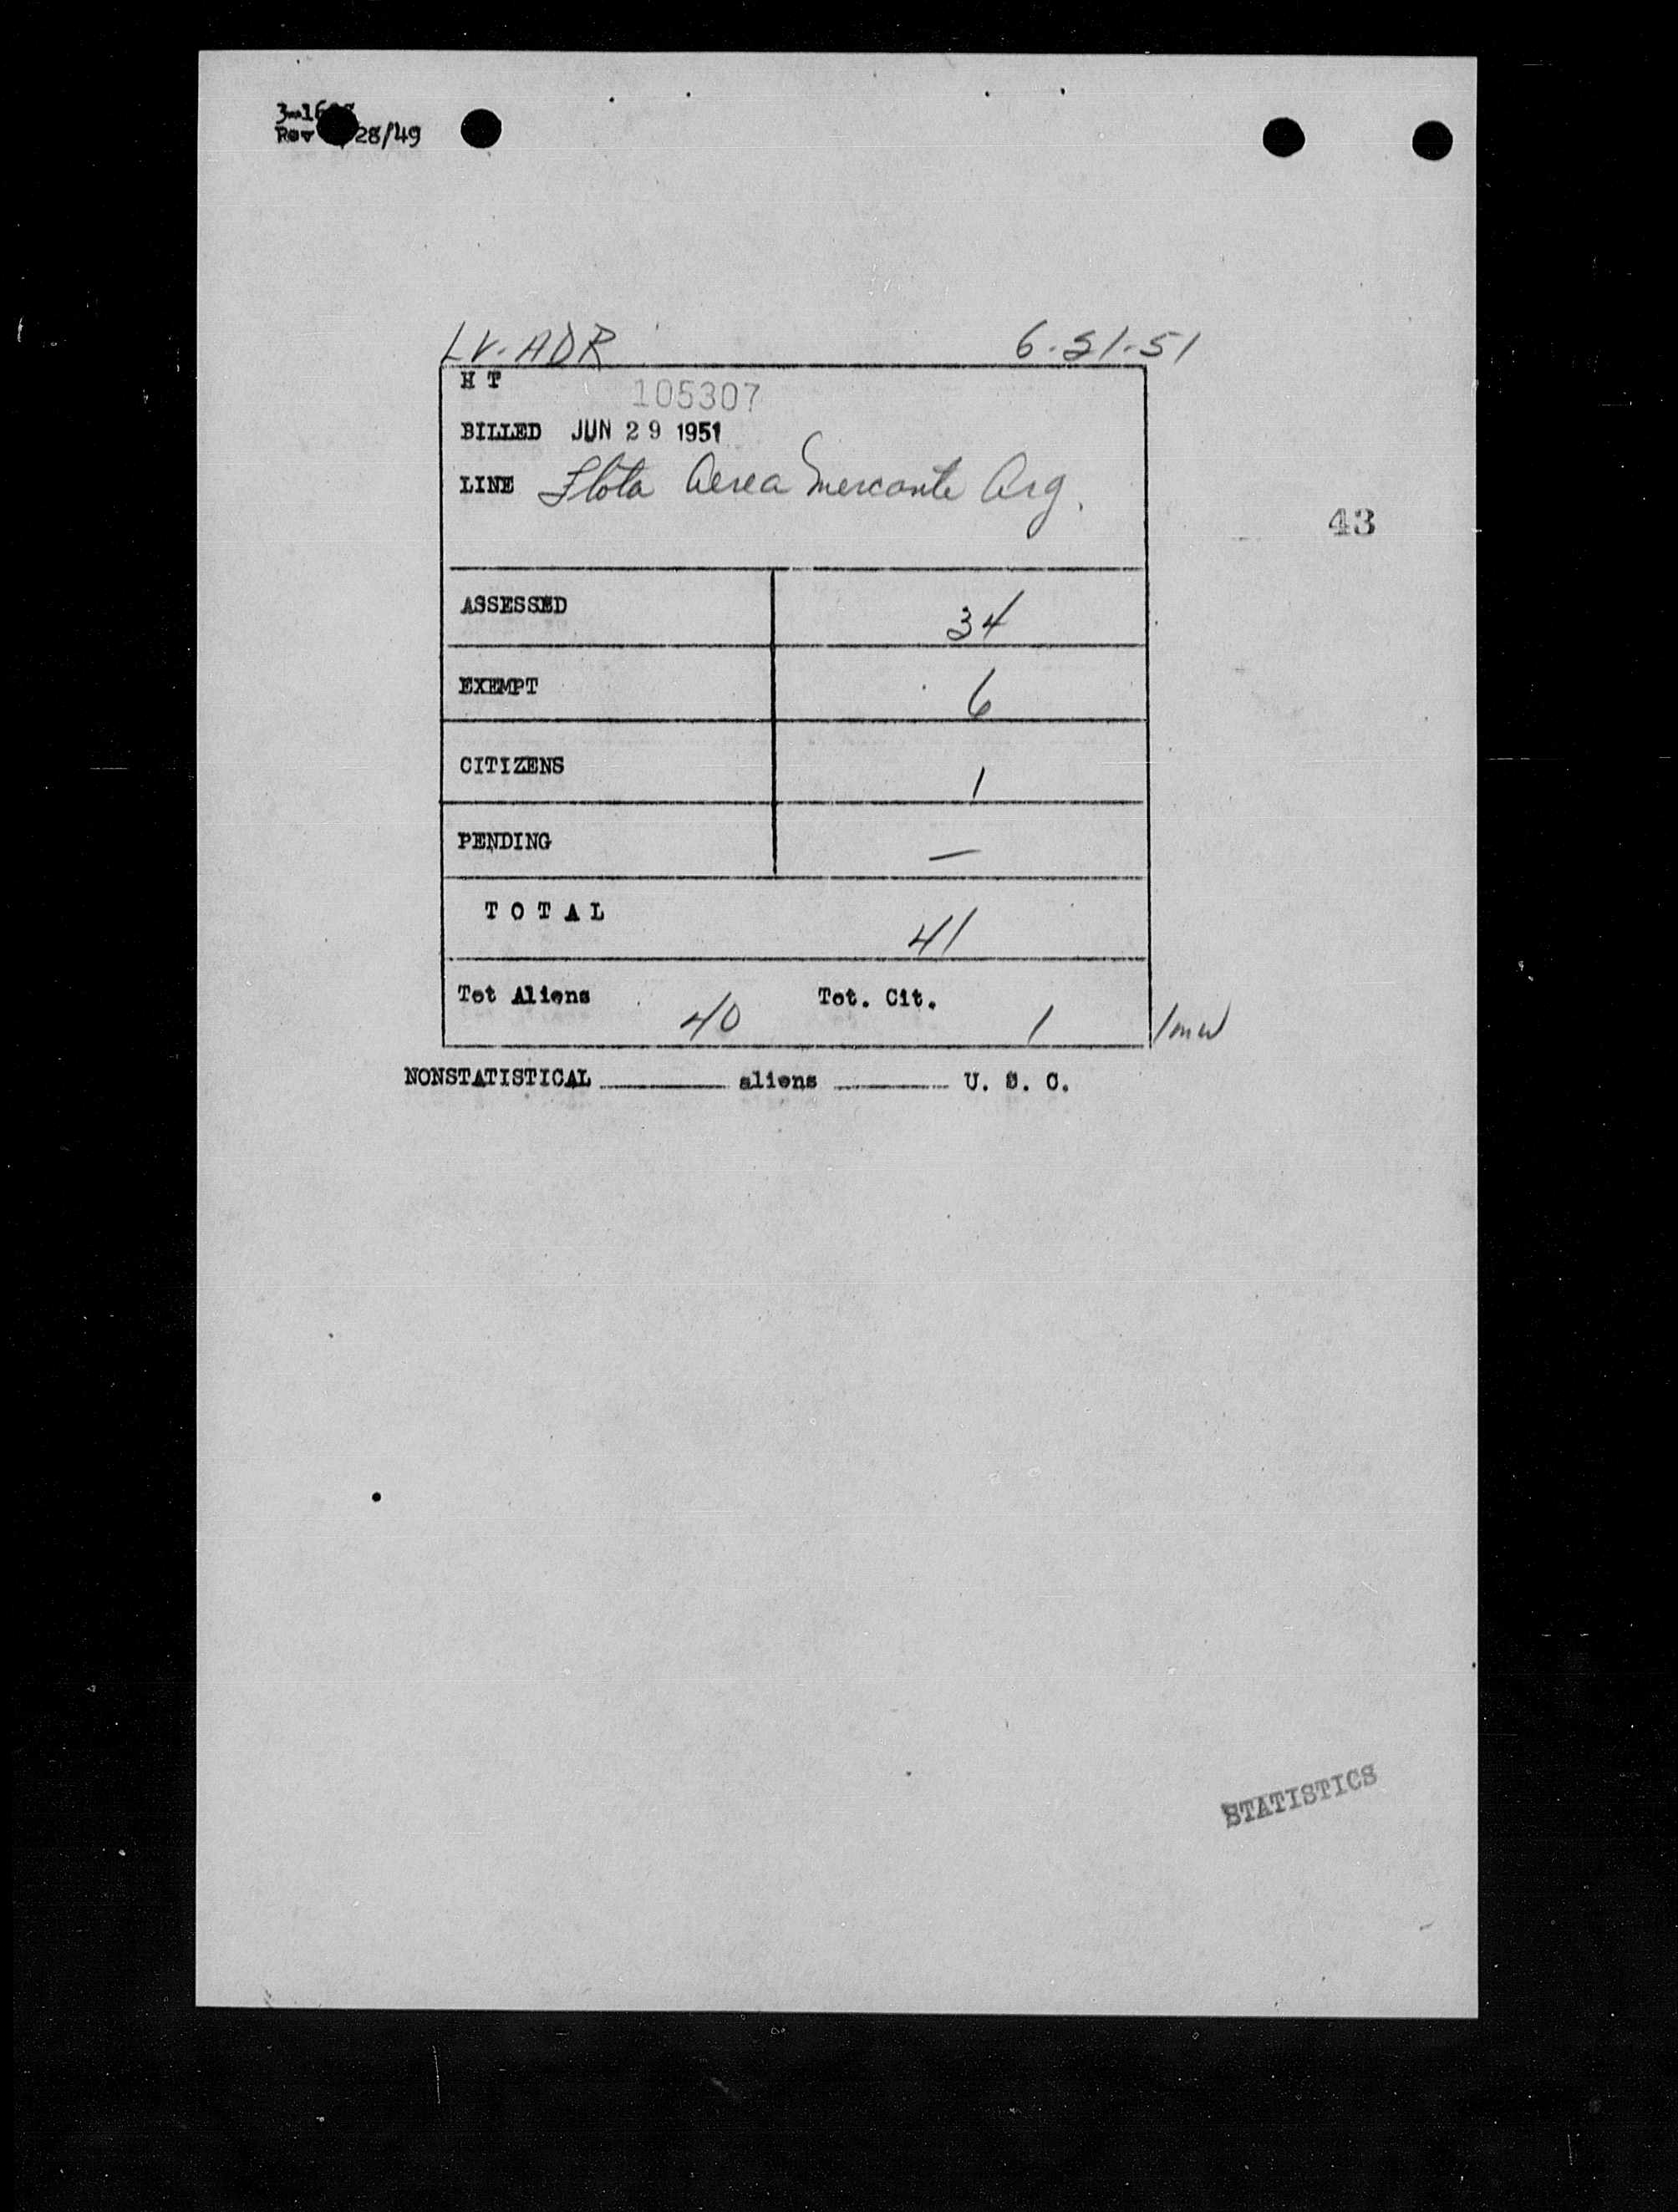 Rev 28/49
LV-ADR 6-21-51
H T 105307
BILLED JUN 29 1951
LINE Flota Aerea Mercante Arg.
43
ASSESSED 34
EXEMPT 6
CITIZENS 1
PENDING —
T O T A L 41
Tot Aliens 40 Tot. Cit. 1
NONSTATISTICAL ________ aliens ________ U. S. C.
STATISTICS